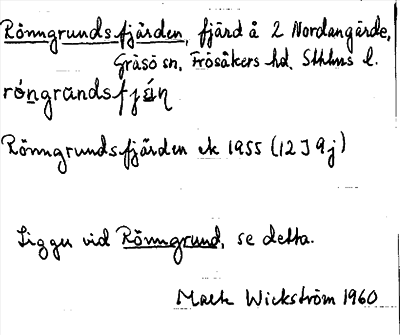 Rönngrundsfjärden, fjärd å 2 Nordangärde,
Gräsö sn, Frösåkers hd. Sthlms l.
Rönngrundsfjärden ek 1955 (12J 9j)
Ligger vid Rönngrund, se detta.
Mats Wickström 1960